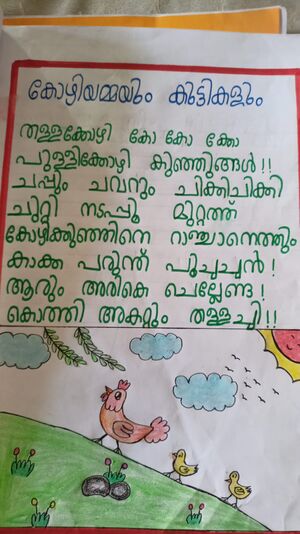 കോഴിയമ്മയും കുട്ടികളും
തള്ളക്കോഴി കോ കോ ക്കോ
പുള്ളിക്കോഴി കുഞ്ഞുങ്ങൾ!!
ചപ്പും ചവറും ചിക്കിചിക്കി
ചുറ്റി നടപ്പൂ മുറ്റത്ത്
കോഴിക്കുഞ്ഞിനെ റാഞ്ചാനെത്തും
കാക്ക പരുന്ത് പൂച്ചച്ചൻ!
ആരും അരികെ ചെല്ലേണ്ട!
കൊത്തി അകറ്റും തള്ളച്ചി!!